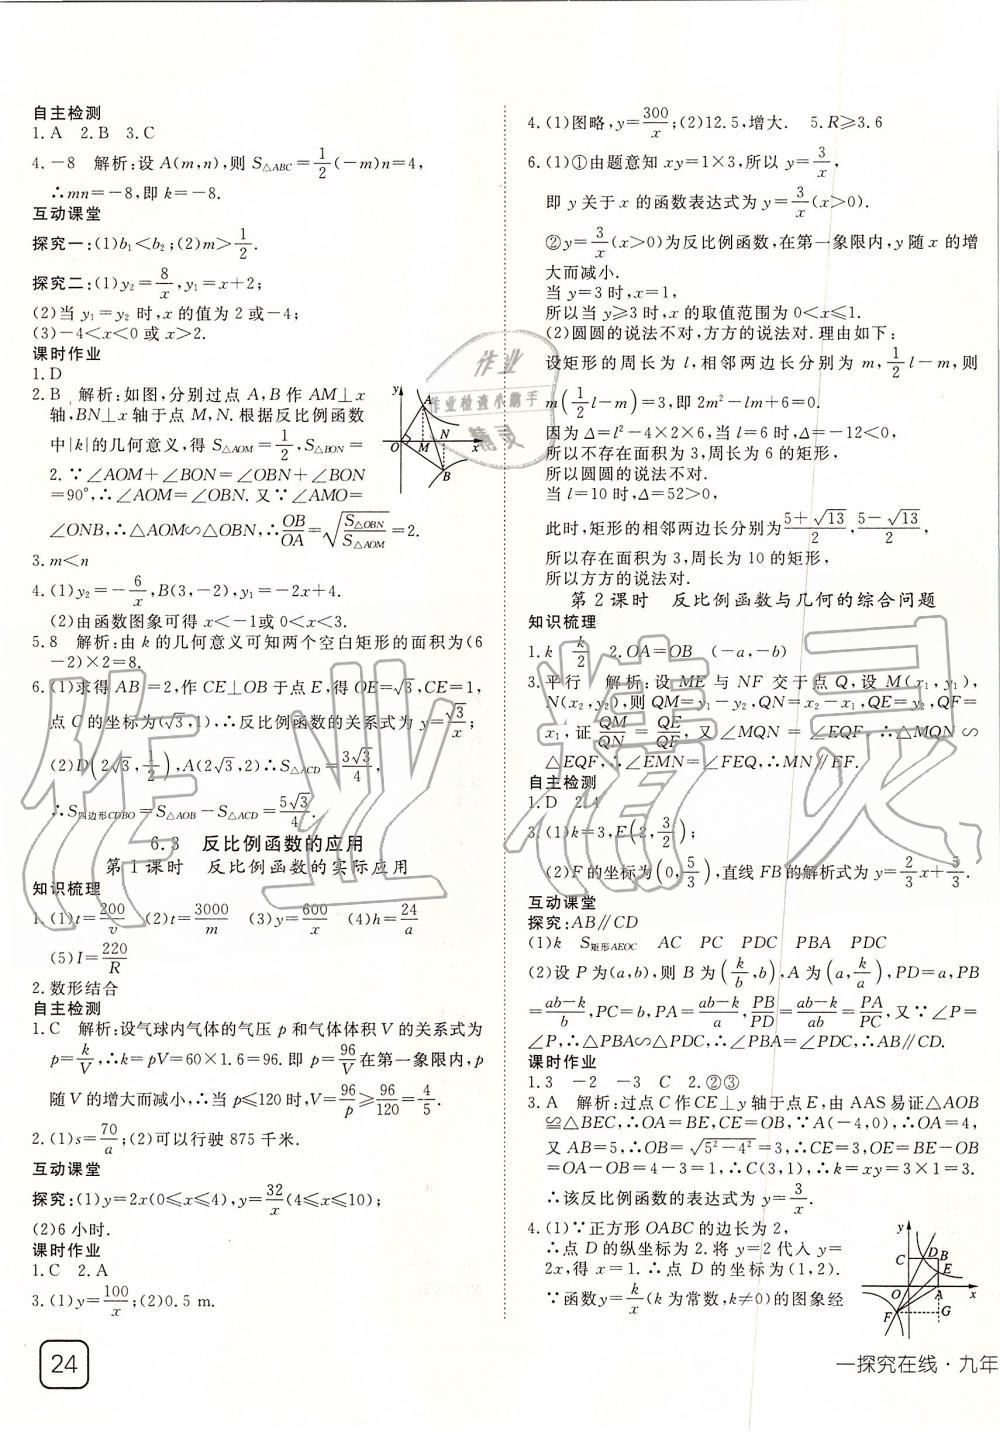 自主检测
1. A 2. B 3. C
4. -8 解析:设 A(m,n),则 S△ABC=1/2(-m)n=4,
∴mn=-8,即 k=-8.
互动课堂
探究一:(1)b₁<b₂;(2)m>1/2.
探究二:(1)y₂=8/x,y₁=x+2;
(2)当 y₁=y₂ 时,x 的值为 2 或-4;
(3)-4<x<0 或 x>2.
课时作业
1. D
2. B 解析:如图,分别过点 A,B 作 AM⊥x
轴,BN⊥x 轴于点 M,N. 根据反比例函数
中|k|的几何意义,得 S△AOM=1/2,S△BON=
2.∵∠AOM+∠BON=∠OBN+∠BON
=90°,∴∠AOM=∠OBN. 又∵∠AMO=
∠ONB,∴△AOM∽△OBN,∴OB/OA=√(S△OBN/S△AOM)=2.
y A O M N x B
3. m<n
4. (1)y₂=-6/x,B(3,-2),y₁=-2x+4.
(2)由函数图象可得 x<-1 或 0<x<3.
5. 8 解析:由 k 的几何意义可知两个空白矩形的面积为(6
-2)×2=8.
6. (1)求得 AB=2,作 CE⊥OB 于点 E,得 OE=√3,CE=1,
点 C 的坐标为(√3,1),∴反比例函数的关系式为 y=√3/x.
(2)D(2√3,1/2),A(2√3,2)∴S△ACD=3√3/4,
∴S四边形CDBO=S△AOB-S△ACD=5√3/4.
6.3 反比例函数的应用
第 1 课时 反比例函数的实际应用
知识梳理
1. (1)t=200/v (2)t=3000/m (3)y=600/x (4)h=24/a
(5)I=220/R
2. 数形结合
自主检测
1. C 解析:设气球内气体的气压 p 和气体体积 V 的关系式为
p=k/V,∴k=pV=60×1.6=96. 即 p=96/V在第一象限内,p
随 V 的增大而减小,∴当 p≤120 时,V=96/p≥96/120=4/5.
2. (1)s=70/a;(2)可以行驶 875 千米.
互动课堂
探究:(1)y=2x(0≤x≤4),y=32/x(4≤x≤10);
(2)6 小时.
课时作业
1. C 2. A
3. (1)y=100/x;(2)0.5 m.
24
4. (1)图略,y=300/x;(2)12.5,增大. 5. R≥3.6
6. (1)①由题意知 xy=1×3,所以 y=3/x,
即 y 关于 x 的函数表达式为 y=3/x(x>0).
②y=3/x(x>0)为反比例函数,在第一象限内,y 随 x 的增
大而减小.
当 y=3 时,x=1,
所以当 y≥3 时,x 的取值范围为 0<x≤1.
(2)圆圆的说法不对,方方的说法对. 理由如下:
设矩形的周长为 l,相邻两边长分别为 m,1/2l-m,则
m(1/2l-m)=3,即 2m²-lm+6=0.
因为 Δ=l²-4×2×6,当 l=6 时,Δ=-12<0,
所以不存在面积为 3,周长为 6 的矩形,
所以圆圆的说法不对.
当 l=10 时,Δ=52>0,
此时,矩形的相邻两边长分别为(5+√13)/2,(5-√13)/2,
所以存在面积为 3,周长为 10 的矩形,
所以方方的说法对.
第 2 课时 反比例函数与几何的综合问题
知识梳理
1. k k/2 2. OA=OB (-a,-b)
3. 平行 解析:设 ME 与 NF 交于点 Q,设 M(x₁,y₁),
N(x₂,y₂),则 QM=y₁-y₂,QN=x₂-x₁,QE=y₂,QF=
x₁,证 QM/QN=QE/QF,又∠MQN=∠EQF,∴△MQN∽
△EQF,∴∠EMN=∠FEQ,∴MN∥EF.
自主检测
1. D 2. 4
3. (1)k=3,E(2,3/2);
(2)F 的坐标为(0,5/3),直线 FB 的解析式为 y=2/3x+5/3.
互动课堂
探究:AB∥CD
(1)k S矩形AEOC AC PC PDC PBA PDC
(2)设 P 为(a,b),则 B 为(k/b,b),A 为(a,k/a),PD=a,PB
=(ab-k)/b,PC=b,PA=(ab-k)/a,PB/PD=(ab-k)/ab=PA/PC,又∵∠P=
∠P,∴△PBA∽△PDC,∴∠PBA=∠PDC,∴AB∥CD.
课时作业
1. 3 -2 -3 C 2. ②③
3. A 解析:过点 C 作 CE⊥y 轴于点 E,由 AAS 易证△AOB
≌△BEC,∴OA=BE,CE=OB,∵A(-4,0),∴OA=4,
又 AB=5,∴OB=√(5²-4²)=3,∴CE=3,OE=BE-OB
=OA-OB=4-3=1,∴C(3,1),∴k=xy=3×1=3.
∴该反比例函数的表达式为 y=3/x.
4. (1)∵正方形 OABC 的边长为 2,
∴点 D 的纵坐标为 2. 将 y=2 代入 y=
2x,得 x=1. ∴点 D 的坐标为(1,2).
∵函数y=k/x(k 为常数,k≠0)的图象经
y C D B E O A x F G
一探究在线·九年
作业
作业检查小助手
精灵
作业精灵